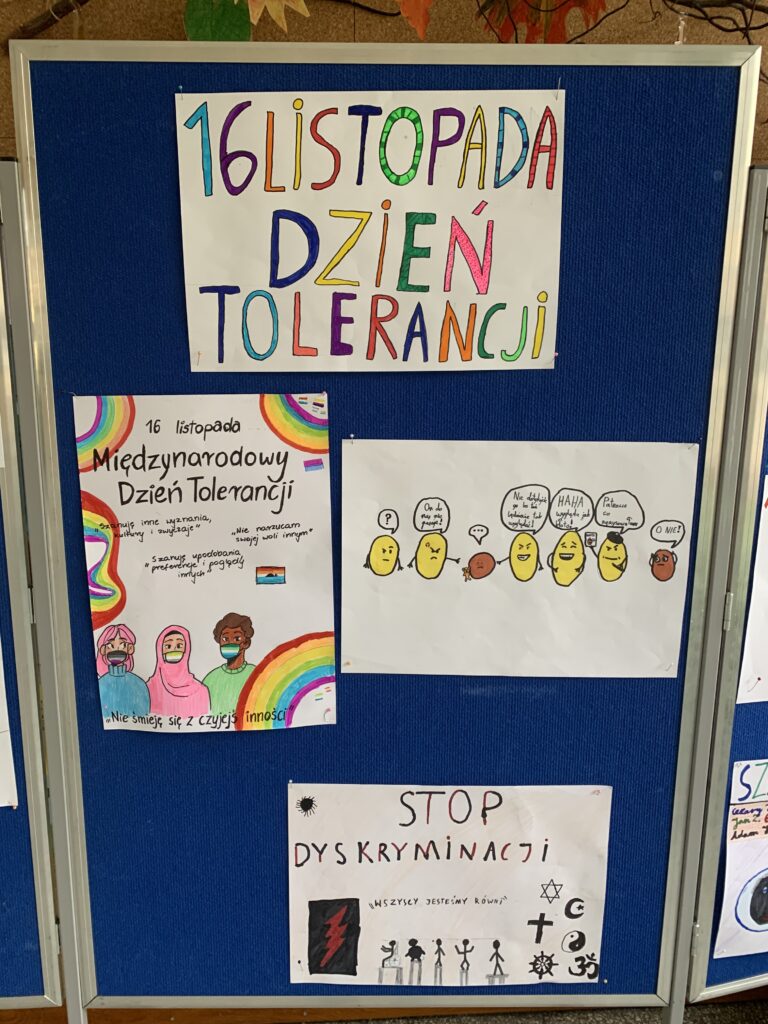 16 LISTOPADA
DZIEŃ
TOLERANCJI
16 listopada
Międzynarodowy
Dzień Tolerancji
"Szanuję inne wyznania,
kultury i zwyczaje"
"Nie narzucam
swojej woli innym"
"Szanuję upodobania,
preferencje i poglądy
innych"
"Nie śmieję się z czyjejś inności"
?
On do
nas nie
pasuje!
...
Nie dotykajcie
go bo
będziecie tak
wyglądać!
HAHA
wygląda jak
Patrzcie
co
O NIE!
STOP
DYSKRYMINACJI
"WSZYSCY JESTEŚMY RÓWNI"
SZ
Jan
Adam